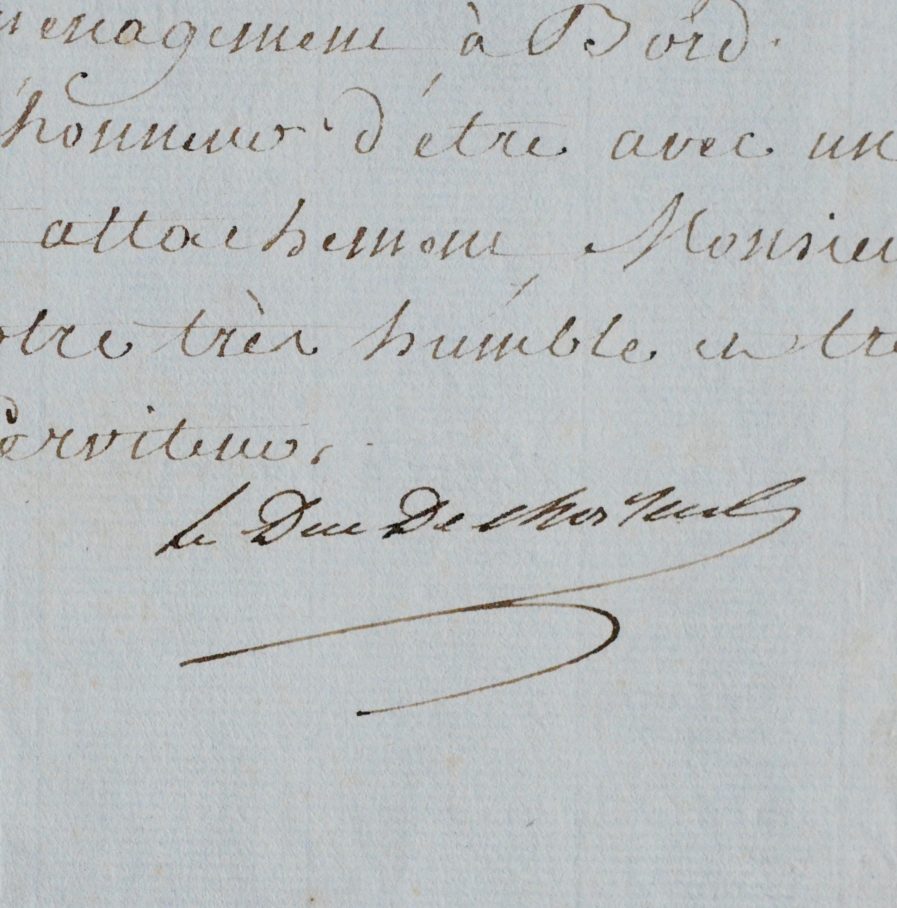 menagement à Bord.
l'honneur d'être avec un
attachement, Monsieu
otre très humble et tre
Serviteur,
Le Duc De choiseul